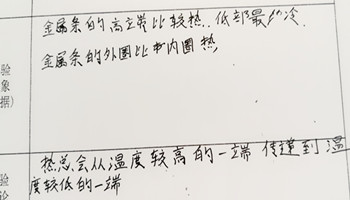 金属条的高端比较热.低部最冷.
金属条的外圈比内圈热
验
象
据)
热总会从温度较高的一端传递到温
度较低的一端
验
论